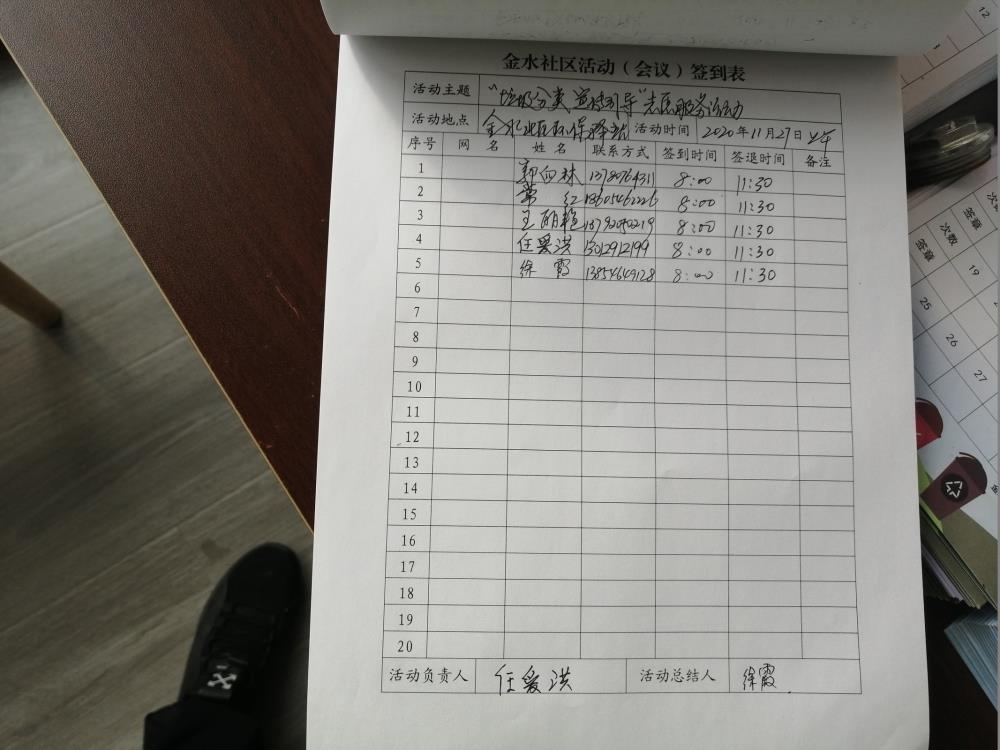 金水社区活动（会议）签到表
活动主题 “垃圾分类宣传引导”志愿服务活动
活动地点 金水社区环保驿站 活动时间 2020年11月27日上午
序号 网名 姓名 联系方式 签到时间 签退时间 备注
1 郭向林 8:00 11:30
2 常红 13605462226 8:00 11:30
3 王丽艳 13792052219 8:00 11:30
4 任爱洪 13012912199 8:00 11:30
5 徐霞 13854649128 8:00 11:30
6
7
8
9
10
11
12
13
14
15
16
17
18
19
20
活动负责人 任爱洪 活动总结人 徐霞
12
签章
次数
签章
19
25
26
27